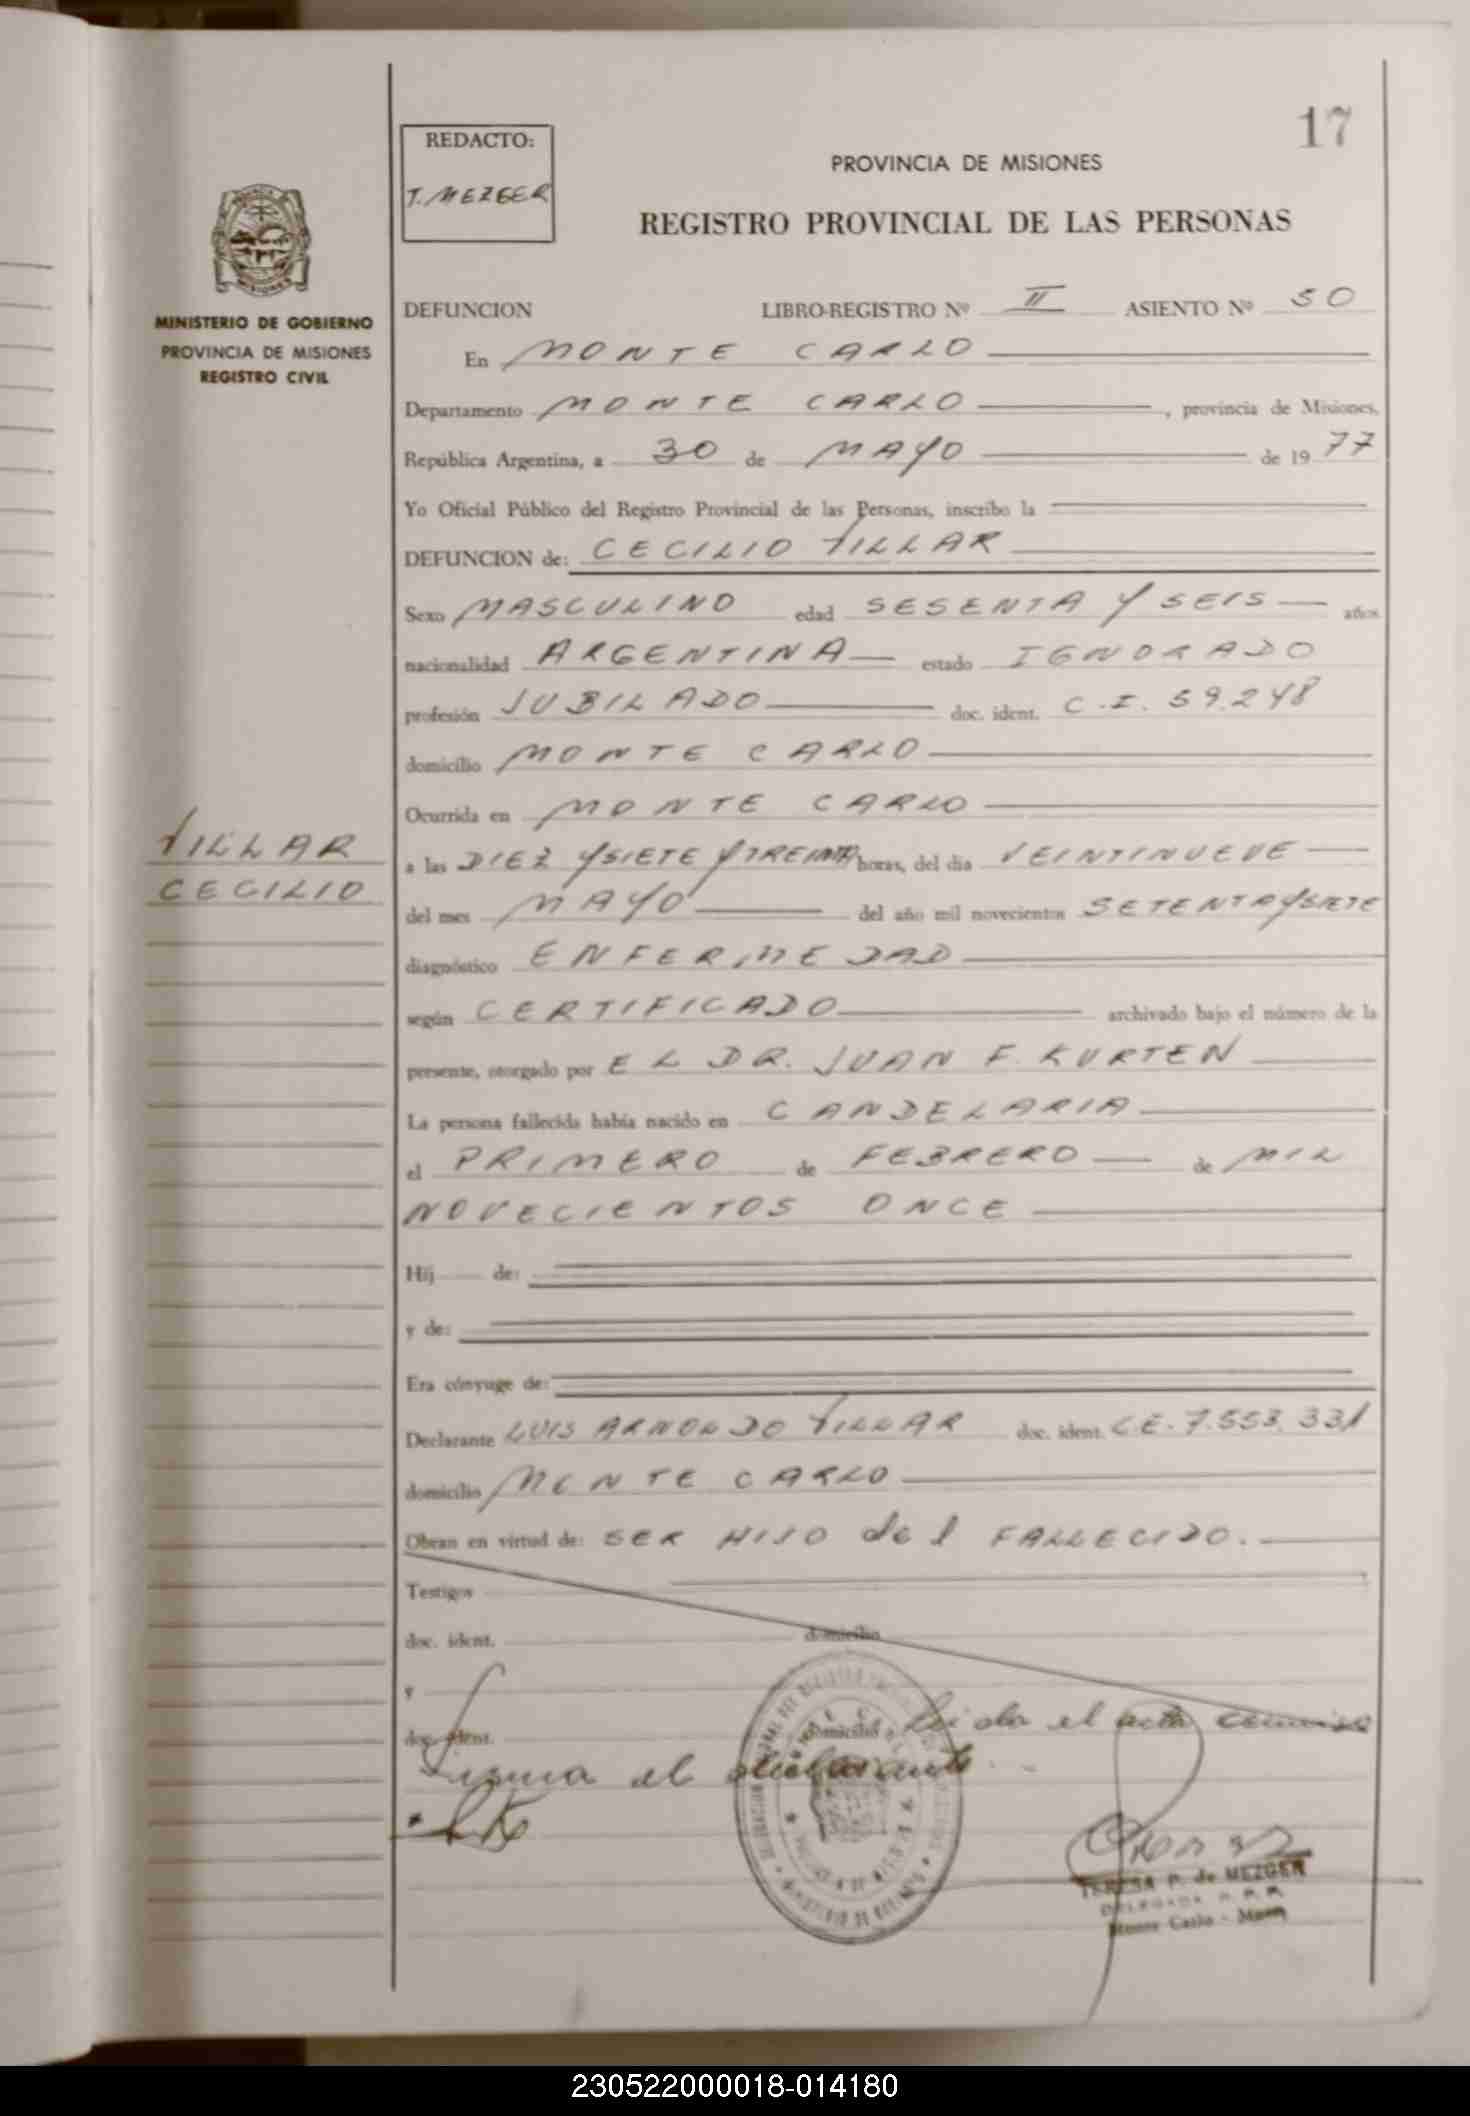 17
REDACTO:
T. MEZGER
PROVINCIA DE MISIONES
REGISTRO PROVINCIAL DE LAS PERSONAS
MINISTERIO DE GOBIERNO
PROVINCIA DE MISIONES
REGISTRO CIVIL
DEFUNCION LIBRO-REGISTRO Nº II ASIENTO Nº 50
En MONTE CARLO
Departamento MONTE CARLO, provincia de Misiones,
República Argentina, a 30 de MAYO de 1977
Yo Oficial Público del Registro Provincial de las Personas, inscribo la
DEFUNCION de: CECILIO VILLAR
Sexo MASCULINO edad SESENTA Y SEIS años
nacionalidad ARGENTINA estado IGNORADO
profesión JUBILADO doc. ident. C.I. 59.248
domicilio MONTE CARLO
Ocurrida en MONTE CARLO
VILLAR
CECILIO
a las DIEZ Y SIETE Y TREINTA horas, del día VEINTINUEVE
del mes MAYO del año mil novecientos SETENTA Y SIETE
diagnóstico ENFERMEDAD
según CERTIFICADO archivado bajo el número de la
presente, otorgado por EL DR. JUAN F. KURTEN
La persona fallecida había nacido en CANDELARIA
el PRIMERO de FEBRERO de MIL
NOVECIENTOS ONCE
Hij de:
y de:
Era cónyuge de:
Declarante LUIS ARNOLDO VILLAR doc. ident. C.E. 7.553.331
domicilio MONTE CARLO
Obran en virtud de: SER HIJO del FALLECIDO.
Testigos
doc. ident. domicilio
y
doc. ident. domicilio Leida el acta
firma el declarante.
TERESA P. de MEZGER
DELEGADA R.P.P.
Monte Carlo - Mnes.
230522000018-014180